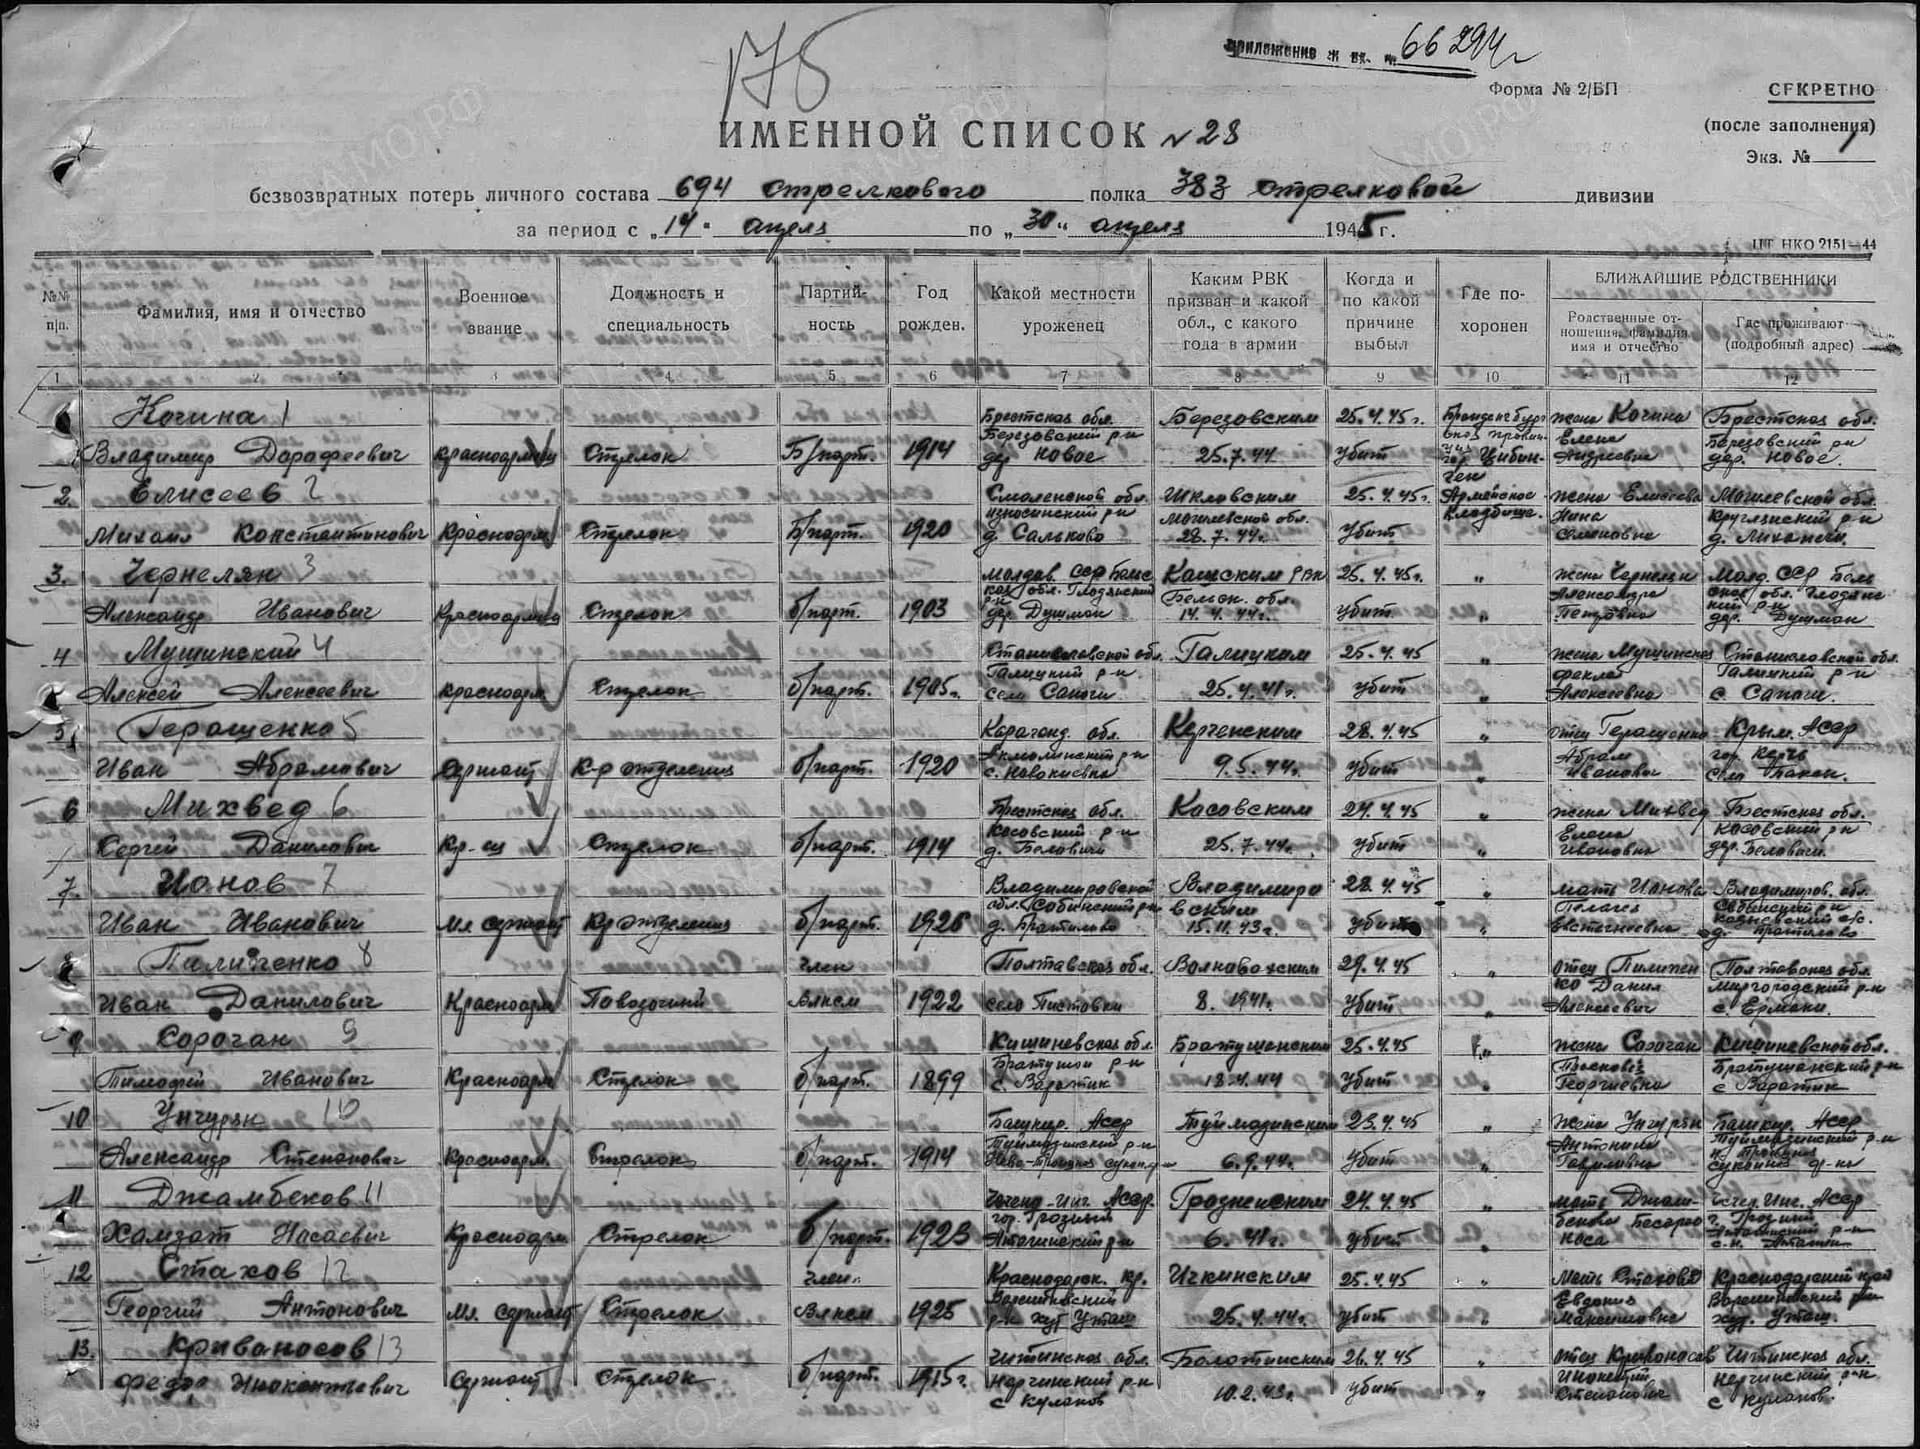 176
Приложение к вх. № 66294г
Форма № 2/БП
СЕКРЕТНО
(после заполнения)
Экз. № 1
ИМЕННОЙ СПИСОК № 28
безвозвратных потерь личного состава 694 стрелкового полка 383 стрелковой дивизии
за период с „14" апреля по „30" апреля 1945 г.
ЦТ НКО 2151—44
№№ п|п. Фамилия, имя и отчество Военное звание Должность и специальность Партийность Год рожден. Какой местности уроженец Каким РВК призван и какой обл., с какого года в армии Когда и по какой причине выбыл Где похоронен БЛИЖАЙШИЕ РОДСТВЕННИКИ
Родственные отношения, фамилия имя и отчество Где проживают (подробный адрес)
1 2 3 4 5 6 7 8 9 10 11 12
Кочина 1 Брестская обл. Березовским 25.4.45г. Бранденбург жена Кочина Брестская обл.
Березовский р-н Елена Березовский р-н
Владимир Дорофеевич красноармеец Стрелок Б/парт. 1914 дер Новое 25.7.44 убит гор Цибинген Андреевна дер. Новое.
2. Елисеев 2 Смоленской обл. Шкловским 25.4.45г. Армейское жена Елисеева Могилевской обл.
Могилевской обл. кладбище. Нина Круглянский р-н
Михаил Константинович Красноарм Стрелок Б/парт. 1920 д. Сальково 28.7.44г. убит Семеновна д.
3. Чернелян 3 Молдав. ССР Бельс 25.4.45г. „ жена Чернелян Молд. ССР Бель
кая обл. Глодянский р-н Бельск. обл. Александра ская обл. Глодянс кий р-н
Александр Иванович Красноармеец Стрелок б/парт. 1903 дер. Душман 14.4.44г. убит „ Петровна дер. Душман
4 Мушинский 4 Станиславовской обл. Галицким 25.4.45 „ жена Мушинская Станиславской обл.
Галицкий р-н Фекла Галицкий р-н
Алексей Алексеевич красноарм Стрелок б/парт. 1905г. село Сапоги 25.4.41г. убит „ Алексеевна с. Сапоги.
5 Геращенко 5 Караганд. обл. Керченским 28.4.45 „ отец Геращенко Крым. Асср
Акмолинский р-н Абрам гор. Керчь
Иван Абрамович Сержант К-р отделения б/парт. 1920 с. Новокиевка 9.5.44г. убит „ Иванович село
6 Михвед 6 Брестская обл. Косовским 24.4.45 „ жена Михвед Брестская обл.
Косовский р-н Елена Косовский р-н
Сергей Данилович Кр-ец Стрелок б/парт. 1914 д. Беловичи 25.7.44г. убит „ Ивановна дер. Беловичи.
7. Ионов 7 Владимировской Владимиро 28.4.45 „ мать Ионова Владимиров. обл.
обл. Собинский р-н вским Пелагея Собинский р-н
Иван Иванович Мл. сержант Кр отделения б/парт. 1926 д. Братилово 15.11.43г. убит „ Евстегнеевна д. Братилово
8 Пилипенко 8 член Полтавская обл. Волновахским 29.4.45 „ отец Пилипен Полтавская обл.
ко Данил Миргородский р-н
Иван Данилович Красноарм Повозочный Влксм 1922 село 8. 1941г. убит „ Алексеевич с. Ермаки.
9 Сорочан 9 Кишиневская обл. Братушенским 25.4.45 „ жена Сорочан Кишиневской обл.
р-н Просковья Братушанский р-н
Тимофей Иванович Красноарм Стрелок б/парт. 1899 с. Варатик 18.4.44 убит „ Георгиевна с Варатик
10 Унчурян 10 Башкир. Асср Туймазинским 25.4.45 „ жена Унчурян Башкир. Асср
Туймазинский р-н Антонина Туймазинский р-н
Александр Степанович Красноарм. Стрелок б/парт. 1914 6.9.44г. убит „ Гавриловна
11 Джамбеков 11 Чечено-Инг. Асср. Грозненским 24.4.45 „ мать Джам- Чечен. Инг. Асср
гор. Грозный бекова г. Грозный
Хамзат Насаевич Красноарм. Стрелок б/парт. 1923 Атагинский р-н 6.41г. убит „
12 Стахов 12 член Краснодарск. кр. Ичкинским 25.4.45 „ Мать Стахова Краснодарский край
Варениковский Евдокия Варениковский р-н
Георгий Антонович Мл. сержант Стрелок Влксм 1925 р-н хут Уташ 25.4.44г. убит „ Максимовна хут. Уташ.
13. Кривоносов 13 Читинская обл. Болотнинским 26.4.45 „ отец Кривоносов Читинская обл.
Нерчинский р-н Инокентий Нерчинский р-н
Федор Инокентиевич Сержант Стрелок б/парт. 1915г. с Куланов 10.2.43г. убит „ Степанович с Куланов.